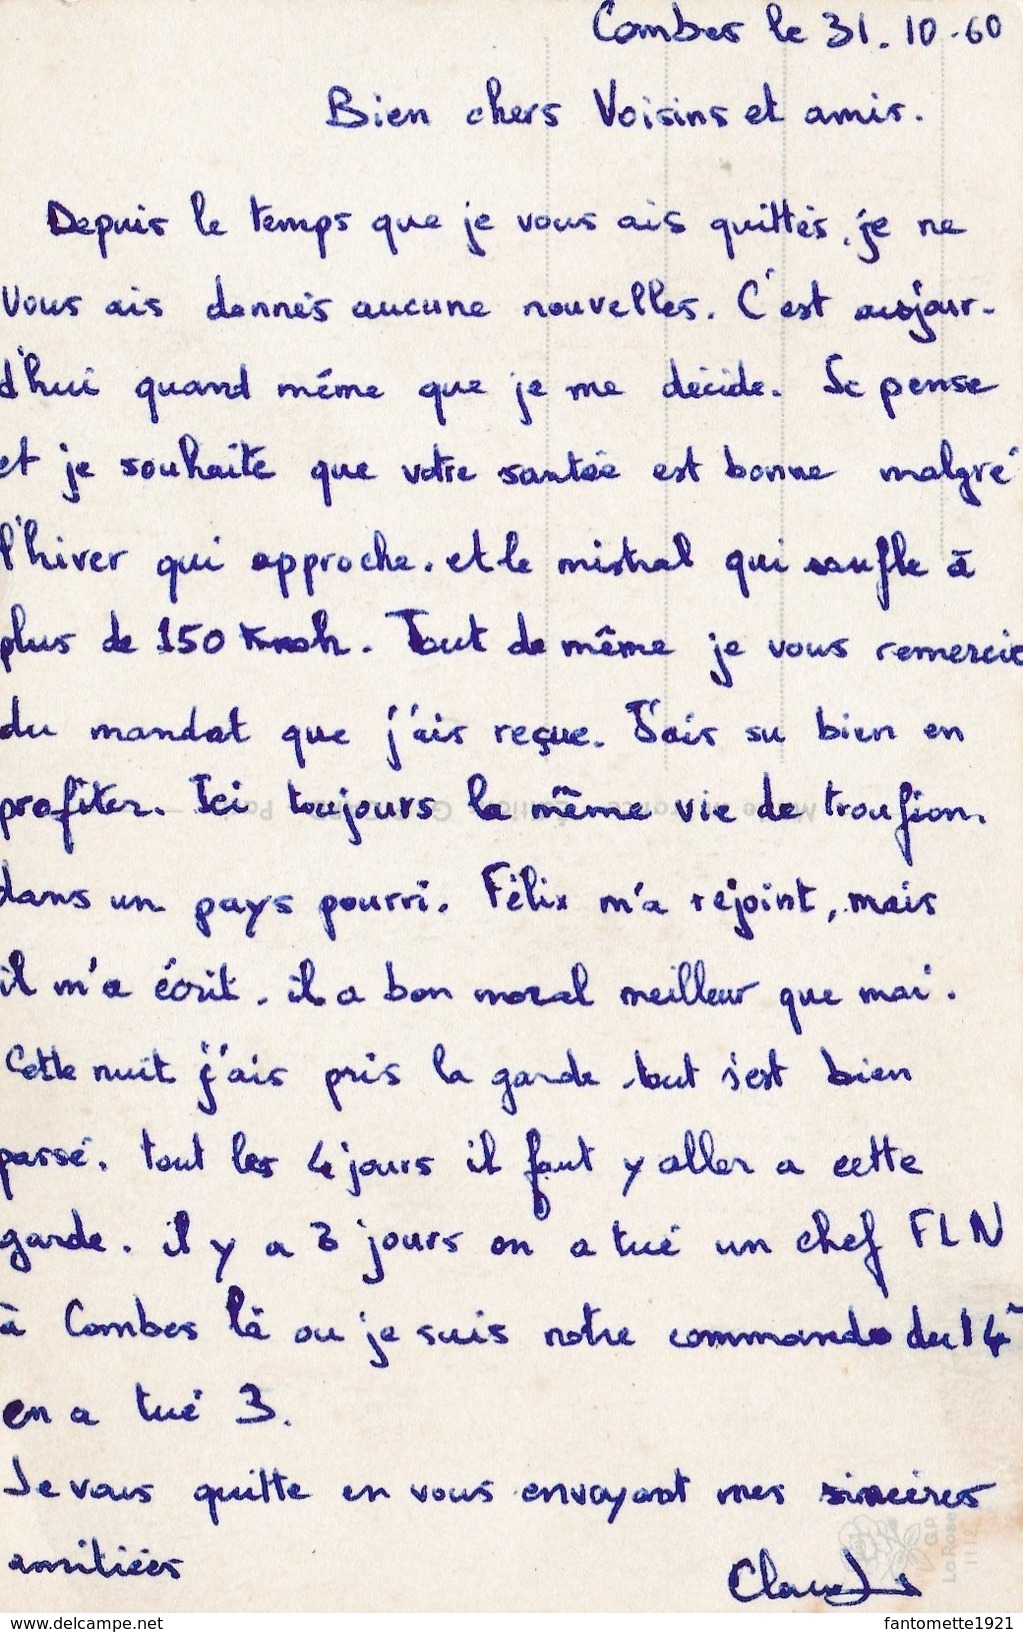 Combes le 31.10.60
Bien chers Voisins et amis.
Depuis le temps que je vous ais quittés, je ne
Vous ais donnés aucune nouvelles. C'est aujour-
d'hui quand même que je me décide. Je pense
et je souhaite que votre santée est bonne malgré
l'hiver qui approche. et le mistral qui soufle à
plus de 150 Kmh. Tout de même je vous remercie
du mandat que j'ais reçue. J'ais su bien en
profiter. Ici toujours la même vie de troufion.
dans un pays pourri. Félix m'a rejoint, mais
il m'a écrit. il a bon moral meilleur que moi.
Cette nuit j'ais pris la garde tout s'est bien
passé. tout les 4 jours il faut y aller a cette
garde. il y a 3 jours on a tué un chef FLN
à Combes là ou je suis notre commando du 14è
en a tué 3.
Je vous quitte en vous envoyant mes sincères
amitiées
Claude
G.P.
La Rose
www.delcampe.net
fantomette1921